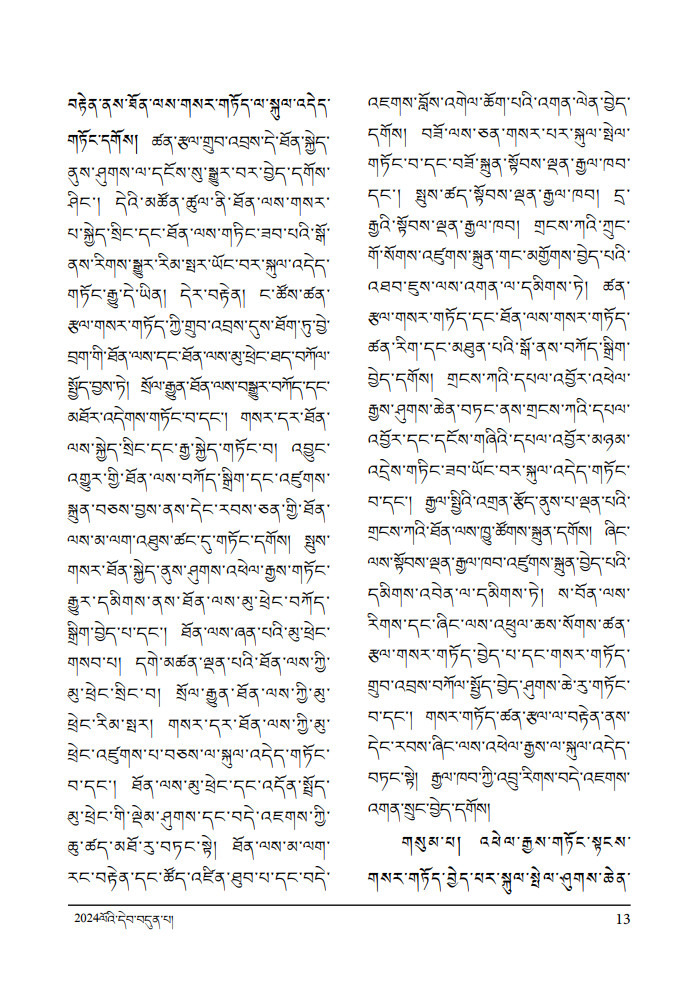 བརྟེན་ནས་ཐོན་ལས་གསར་གཏོད་ལ་སྐུལ་འདེད་
གཏོང་དགོས། ཚན་རྩལ་གྲུབ་འབྲས་དེ་ཐོན་སྐྱེད་
ནུས་ཤུགས་ལ་དངོས་སུ་སྒྱུར་བར་བྱེད་དགོས་
ཤིང་། དེའི་མཚོན་ཚུལ་ནི་ཐོན་ལས་གསར་
པ་སྐྱེད་སྲིང་དང་ཐོན་ལས་གཏིང་ཟབ་པའི་སྒོ་
ནས་རིགས་སྒྱུར་རིམ་སྤར་ཡོང་བར་སྐུལ་འདེད་
གཏོང་རྒྱུ་དེ་ཡིན། དེར་བརྟེན། ང་ཚོས་ཚན་
རྩལ་གསར་གཏོད་ཀྱི་གྲུབ་འབྲས་དུས་ཐོག་ཏུ་བྱེ་
བྲག་གི་ཐོན་ལས་དང་ཐོན་ལས་མུ་ཕྲེང་ཐད་བཀོལ་
སྤྱོད་བྱས་ཏེ། སྲོལ་རྒྱུན་ཐོན་ལས་བསྒྱུར་བཀོད་དང་
མཐོར་འདེགས་གཏོང་བ་དང་། གསར་དར་ཐོན་
ལས་སྐྱེད་སྲིང་དང་རྒྱ་སྐྱེད་གཏོང་བ། འབྱུང་
འགྱུར་གྱི་ཐོན་ལས་བཀོད་སྒྲིག་དང་འཛུགས་
སྐྲུན་བཅས་བྱས་ནས་དེང་རབས་ཅན་གྱི་ཐོན་
ལས་མ་ལག་འཐུས་ཚང་དུ་གཏོང་དགོས། སྤུས་
གསར་ཐོན་སྐྱེད་ནུས་ཤུགས་འཕེལ་རྒྱས་གཏོང་
རྒྱུར་དམིགས་ནས་ཐོན་ལས་མུ་ཕྲེང་བཀོད་
སྒྲིག་བྱེད་པ་དང་། ཐོན་ལས་ཞན་པའི་མུ་ཕྲེང་
གསབ་པ། དགེ་མཚན་ལྡན་པའི་ཐོན་ལས་ཀྱི་
མུ་ཕྲེང་སྲིང་བ། སྲོལ་རྒྱུན་ཐོན་ལས་ཀྱི་མུ་
ཕྲེང་རིམ་སྤར། གསར་དར་ཐོན་ལས་ཀྱི་མུ་
ཕྲེང་འཛུགས་པ་བཅས་ལ་སྐུལ་འདེད་གཏོང་
བ་དང་། ཐོན་ལས་མུ་ཕྲེང་དང་འདོན་སྤྲོད་
མུ་ཕྲེང་གི་ལྡེམ་ཤུགས་དང་བདེ་འཇགས་ཀྱི་
ཆུ་ཚད་མཐོ་རུ་བཏང་སྟེ། ཐོན་ལས་མ་ལག་
རང་བརྟེན་དང་ཚོད་འཛིན་ཐུབ་པ་དང་བདེ་
འཇགས་བློས་འགེལ་ཆོག་པའི་འགན་ལེན་བྱེད་
དགོས། བཟོ་ལས་ཅན་གསར་པར་སྐུལ་སྤེལ་
གཏོང་བ་དང་བཟོ་སྐྲུན་སྟོབས་ལྡན་རྒྱལ་ཁབ་
དང་། སྤུས་ཚད་སྟོབས་ལྡན་རྒྱལ་ཁབ། དྲ་
རྒྱའི་སྟོབས་ལྡན་རྒྱལ་ཁབ། གྲངས་ཀའི་ཀྲུང་
གོ་སོགས་འཛུགས་སྐྲུན་གང་མགྱོགས་བྱེད་པའི་
འཐབ་ཇུས་ལས་འགན་ལ་དམིགས་ཏེ། ཚན་
རྩལ་གསར་གཏོད་དང་ཐོན་ལས་གསར་གཏོད་
ཚན་རིག་དང་མཐུན་པའི་སྒོ་ནས་བཀོད་སྒྲིག་
བྱེད་དགོས། གྲངས་ཀའི་དཔལ་འབྱོར་འཕེལ་
རྒྱས་ཤུགས་ཆེན་བཏང་ནས་གྲངས་ཀའི་དཔལ་
འབྱོར་དང་དངོས་གཞིའི་དཔལ་འབྱོར་མཉམ་
འདྲེས་གཏིང་ཟབ་ཡོང་བར་སྐུལ་འདེད་གཏོང་
བ་དང་། རྒྱལ་སྤྱིའི་འགྲན་རྩོད་ནུས་པ་ལྡན་པའི་
གྲངས་ཀའི་ཐོན་ལས་ཁྱུ་ཚོགས་སྐྲུན་དགོས། ཞིང་
ལས་སྟོབས་ལྡན་རྒྱལ་ཁབ་འཛུགས་སྐྲུན་བྱེད་པའི་
དམིགས་འབེན་ལ་དམིགས་ཏེ། ས་བོན་ལས་
རིགས་དང་ཞིང་ལས་འཕྲུལ་ཆས་སོགས་ཚན་
རྩལ་གསར་གཏོད་བྱེད་པ་དང་གསར་གཏོད་
གྲུབ་འབྲས་བཀོལ་སྤྱོད་བྱེད་ཤུགས་ཆེ་རུ་གཏོང་
བ་དང་། གསར་གཏོད་ཚན་རྩལ་ལ་བརྟེན་ནས་
དེང་རབས་ཞིང་ལས་འཕེལ་རྒྱས་ལ་སྐུལ་འདེད་
བཏང་སྟེ། རྒྱལ་ཁབ་ཀྱི་འབྲུ་རིགས་བདེ་འཇགས་
འགན་སྲུང་བྱེད་དགོས།
གསུམ་པ། འཕེལ་རྒྱས་གཏོང་སྟངས་
གསར་གཏོད་བྱེད་པར་སྐུལ་སྤེལ་ཤུགས་ཆེན་
2024ལོའི་དེབ་བདུན་པ། 13